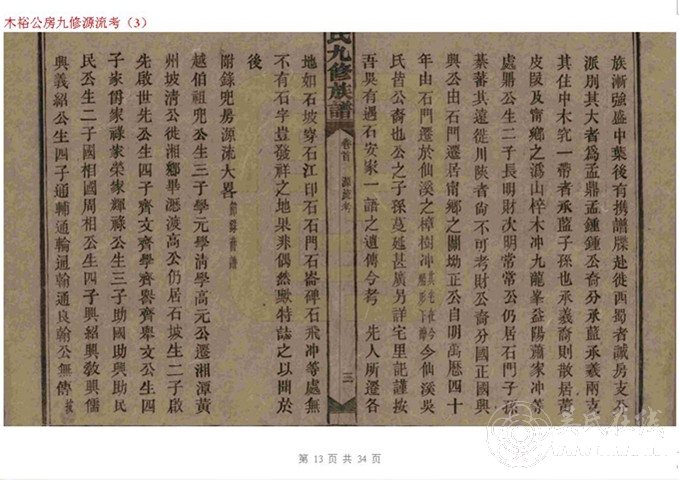 木裕公房九修源流考（3）
族漸強盛中葉後有携譜牒赴徙西蜀者誠房支
派別其大者為孟鼎孟鍾鍾公裔分承藍承羲兩支
其住中木宂一帶者承藍子孫也承羲裔則散居黃
皮及甯鄉之溈山梓木冲九龍峯益陽蕭家冲等
處鼎公生二子長明財次明常常公仍居石門子孫
蕃其遠徙川陝者尙不可考財公裔分國正國興
興公由石門遷居甯鄉之關㘭正公自明萬厯四十
年由石門遷於仙溪之樟樹冲今仙溪吳
氏皆公裔也公之子孫蔓延甚廣另詳宅里記謹按
吾吳有遇石安家一語之遺傳今考 先人所遷各
氏九修族譜
卷首 源流考
三
地如石坡穿石江印石石門石崙碑石飛冲等處無
不有石字豈發祥之地果非偶然歟特誌之以開於
後
附錄兜房源流大畧
越伯祖兜公生三子學元學清學高元公遷湘潭黃
州坡清公徙湘鄉畢瀝渡高公仍居石坡生二子啟
先啟世先公生四子齊文齊學齊譽齊舉文公生四
子家爵家祿家榮家輝祿公生三子助國助興助民
民公生二子國相國周相公生四子興紹興敎興儒
興義紹公生四子通輔通輪通翰通良翰公無傳
第 13 页 共 34 页
吴氏在线